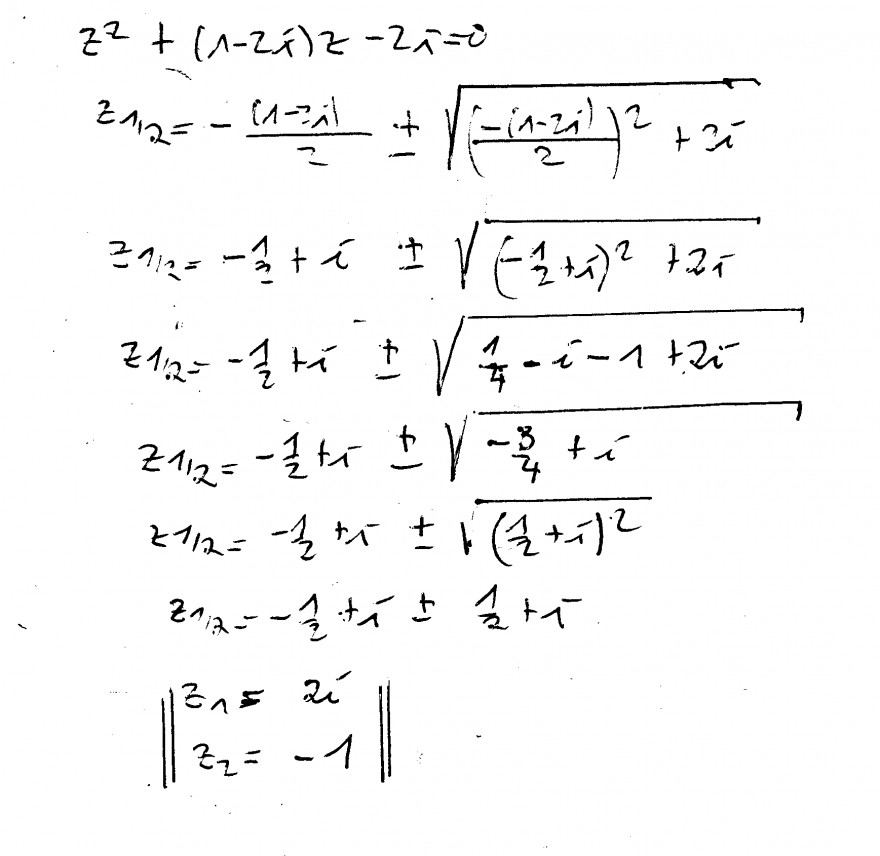 z² + (1-2i)z - 2i = 0
z₁/₂ = - (1-2i)/2 ± √((-(1-2i)/2)² + 2i)
z₁/₂ = -1/2 + i ± √((-1/2 + i)² + 2i)
z₁/₂ = -1/2 + i ± √(1/4 - i - 1 + 2i)
z₁/₂ = -1/2 + i ± √(-3/4 + i)
z₁/₂ = -1/2 + i ± √((1/2 + i)²)
z₁/₂ = -1/2 + i ± 1/2 + i
z₁ = 2i
z₂ = -1